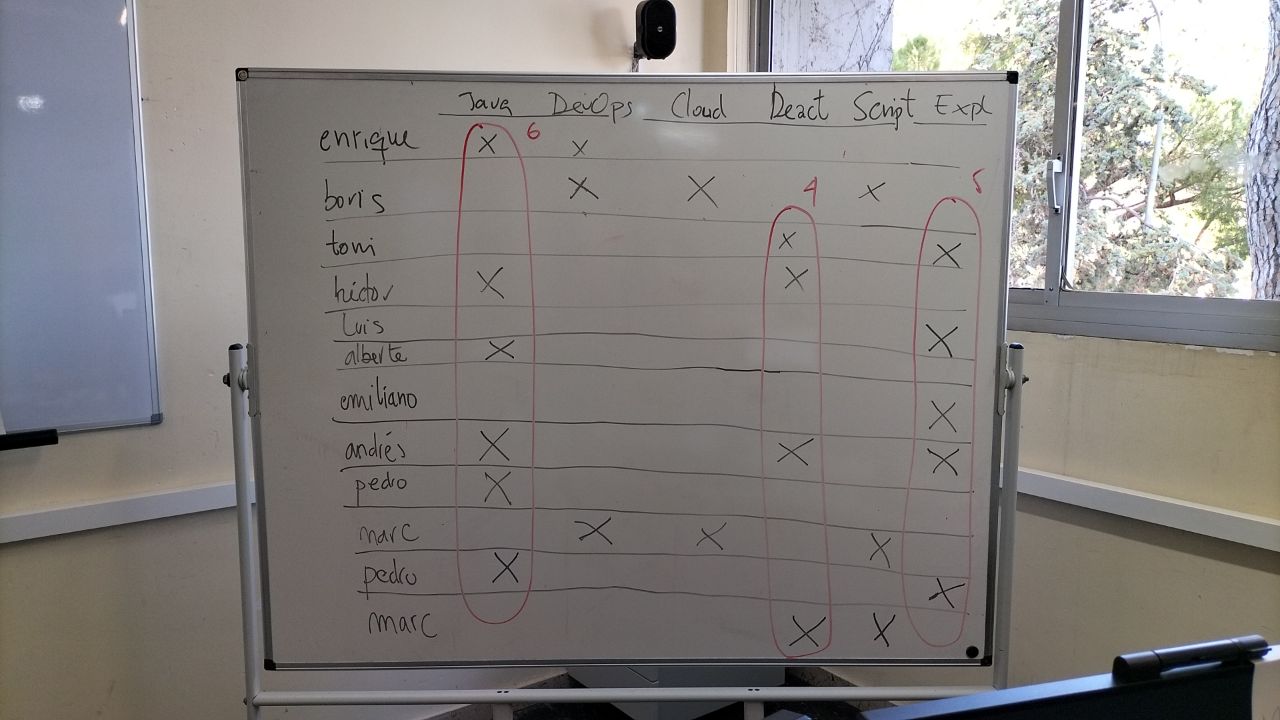 Java DevOps Cloud React Script Expl
enrique X X 6
boris X X X 4 5
toni X X
héctor X X
Luis X
alberte X
emiliano X
andrés X X X
pedro X
marc X X X
pedro X X
marc X X